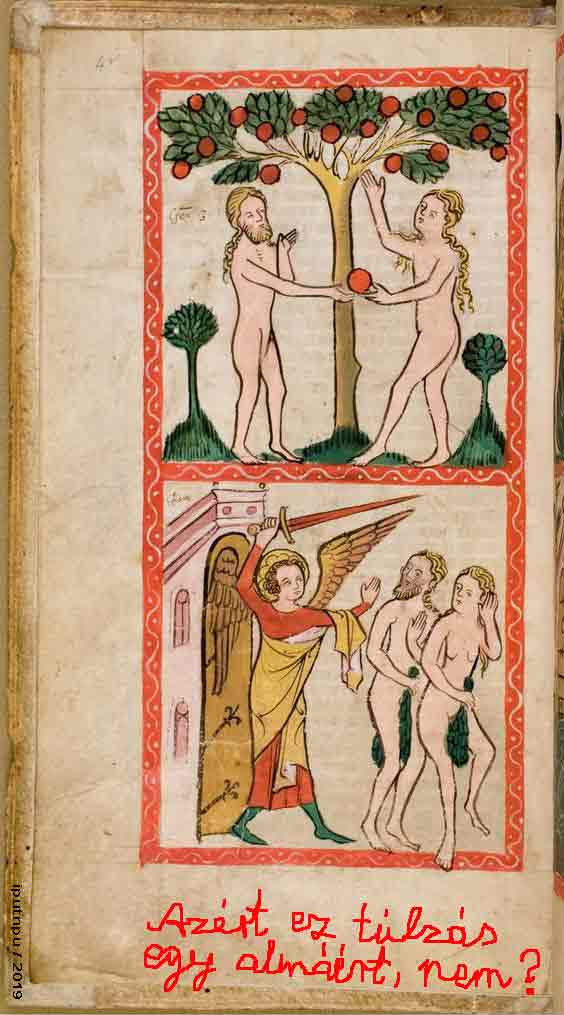 4v
Azért ez túlzás
egy almáért, nem?
iputnpu / 2019